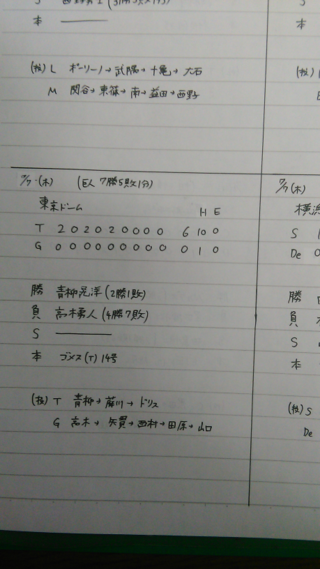 本
(投) L ポーリーノ→武隈→十亀→大石
M 関谷→東條→南→益田→西野
7/7 (木) (巨人 7勝5敗1分)
東京ドーム
H E
T 2 0 2 0 2 0 0 0 0 6 10 0
G 0 0 0 0 0 0 0 0 0 0 1 0
勝 青柳晃洋 (2勝1敗)
負 高木勇人 (4勝7敗)
S
本 ゴメス (T) 14号
(投) T 青柳→藤川→ドリス
G 高木→矢貫→西村→田原→山口
7/7 (木)
横浜
S
De
勝
負
S
本
(投) S
De